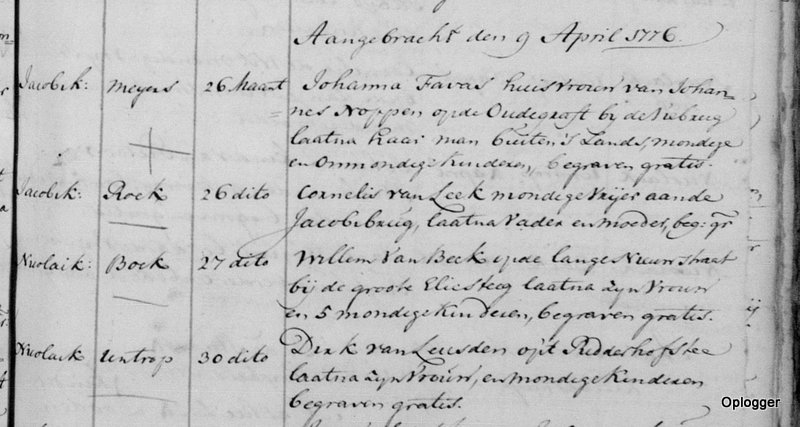 Aangebracht den 9 April 1776.
Jacobik: Meyers 26 Maart Johanna Favas huisvrouw van Johan=
nes Noppen op de Oudegraft bij de Viebrug
laatna haar man buiten 's Lands, mondige
en Onmondige kinderen, begraven gratis.
Jacobik: Roek 26 dito Cornelis van Leek mondige vrijer aande
Jacobibrug, laatna vader en moeder, beg: gr
Nicolaik: Boek 27 dito Willem van Beek op de lange Nieuwstraat
bij de groote Eliesteeg laatna zyn vrouw
en 5 mondige kinderen, begraven gratis.
Nicolaik Untrop 30 dito Dirk van Leusden op't
laatna zyn vrouw, en mondige kinderen
begraven gratis.
Oplogger